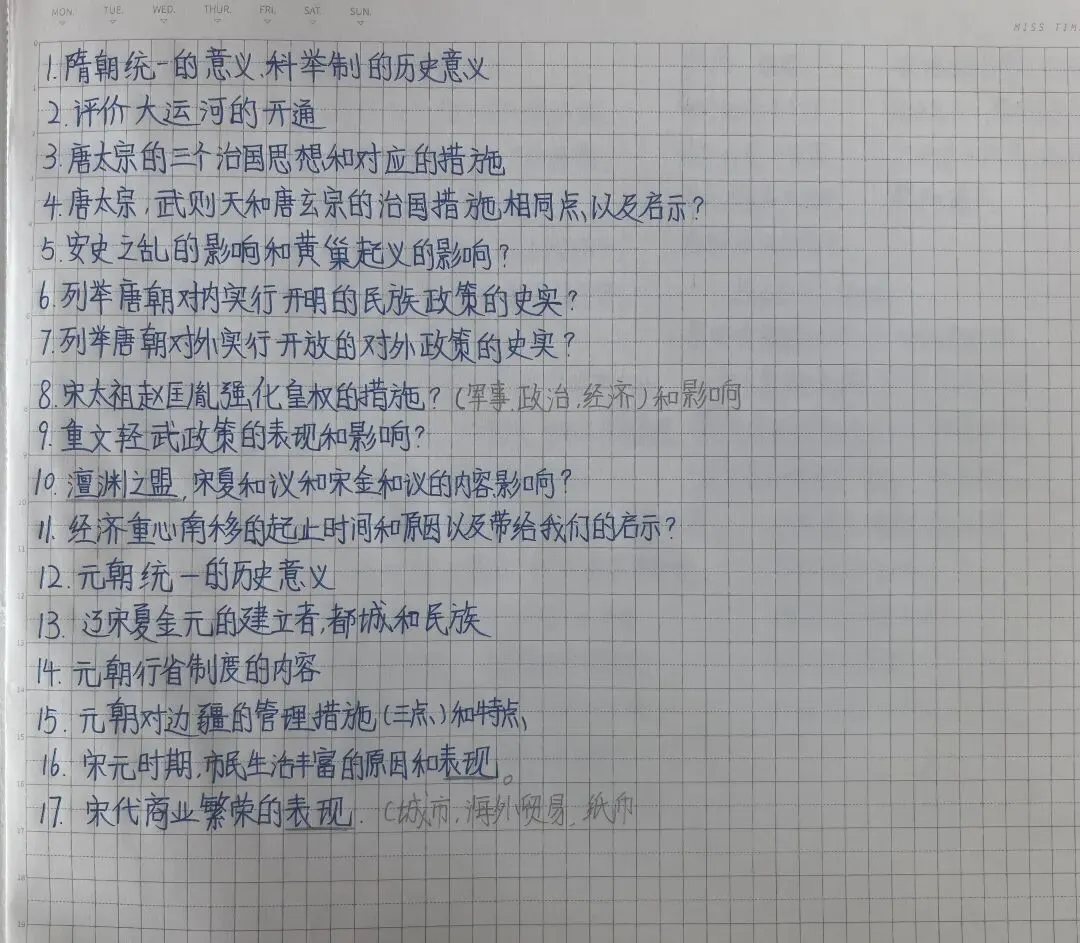 MON. TUE. WED. THUR. FRI. SAT. SUN.
MISS TIM
1.隋朝统一的意义、科举制的历史意义
2.评价大运河的开通
3.唐太宗的三个治国思想和对应的措施
4.唐太宗,武则天和唐玄宗的治国措施相同点、以及启示?
5.安史之乱的影响和黄巢起义的影响?
6.列举唐朝对内实行开明的民族政策的史实?
7.列举唐朝对外实行开放的对外政策的史实?
8.宋太祖赵匡胤强化皇权的措施?(军事.政治.经济)和影响
9.重文轻武政策的表现和影响?
10.澶渊之盟,宋夏和议和宋金和议的内容影响?
11.经济重心南移的起止时间和原因以及带给我们的启示?
12.元朝统一的历史意义
13.辽宋夏金元的建立者,都城和民族
14.元朝行省制度的内容
15.元朝对边疆的管理措施(三点、)和特点、
16.宋元时期,市民生活丰富的原因和表现。
17.宋代商业繁荣的表现.(城市.海外贸易.纸币